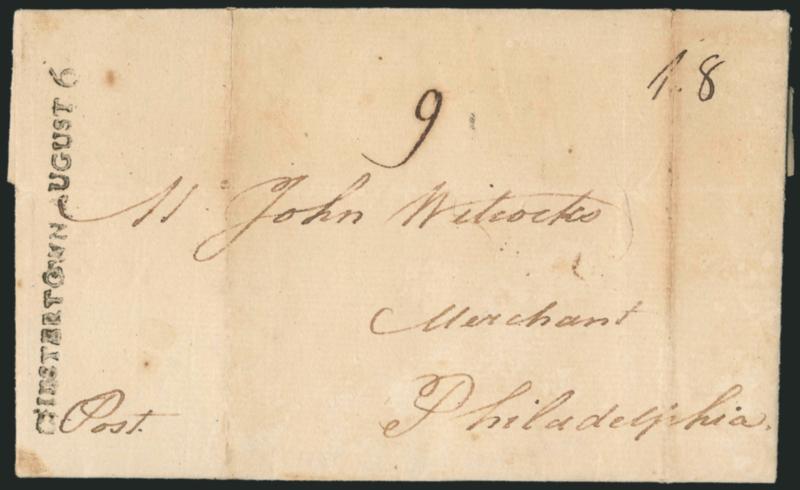 CHESTERTOWN AUGUST 6
9
1.8
Mr John Wilcocks
Merchant
Philadelphia.
Post.